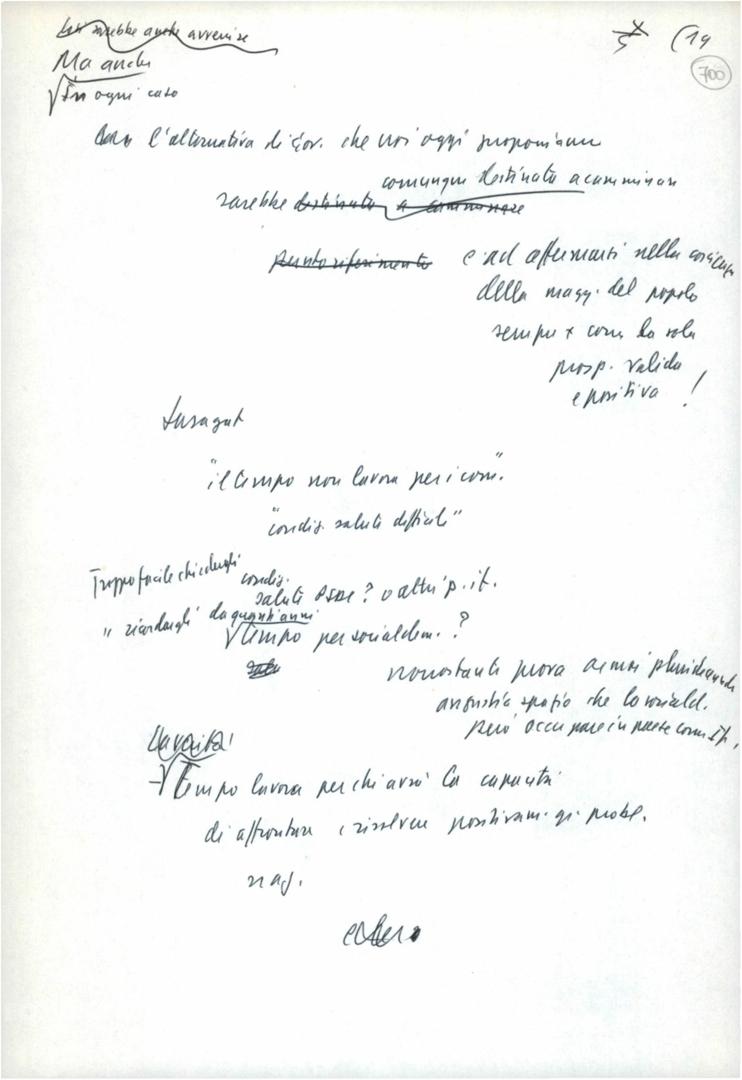 sarebbe anche avvenire
(14
700
Ma anche
In ogni caso
l'alternativa di gov. che noi oggi proponiamo
comunque destinata a camminare
sarebbe destinata a camminare
punto riferimento e ad affermarsi nella coscienza
della magg. del popolo
sempre + come la sola
prosp. valida
e positiva!
Saragat
"il tempo non lavora per i com."
"condiz. salute difficili"
Troppo facile chiedergli condiz.
salute PSDI? o altri p. it.
" ricordargli da quanti anni
tempo per socialdem.?
nonostante prova
angustia spazio che la sociald.
può occupare in paese come It.
La verità!
Tempo lavora per chi avrà la capacità
di affrontare e risolvere positivam. gr. probl.
naz.